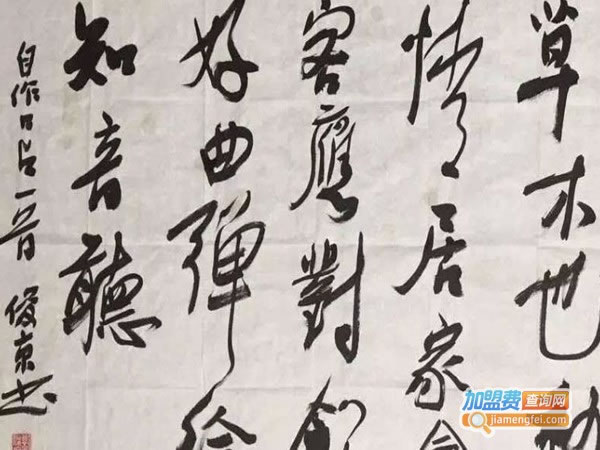 草木也
情居家
客應對
好曲彈給
知音聽
自作口占一首 俊京书
加盟费查询网
jiamengfei.com